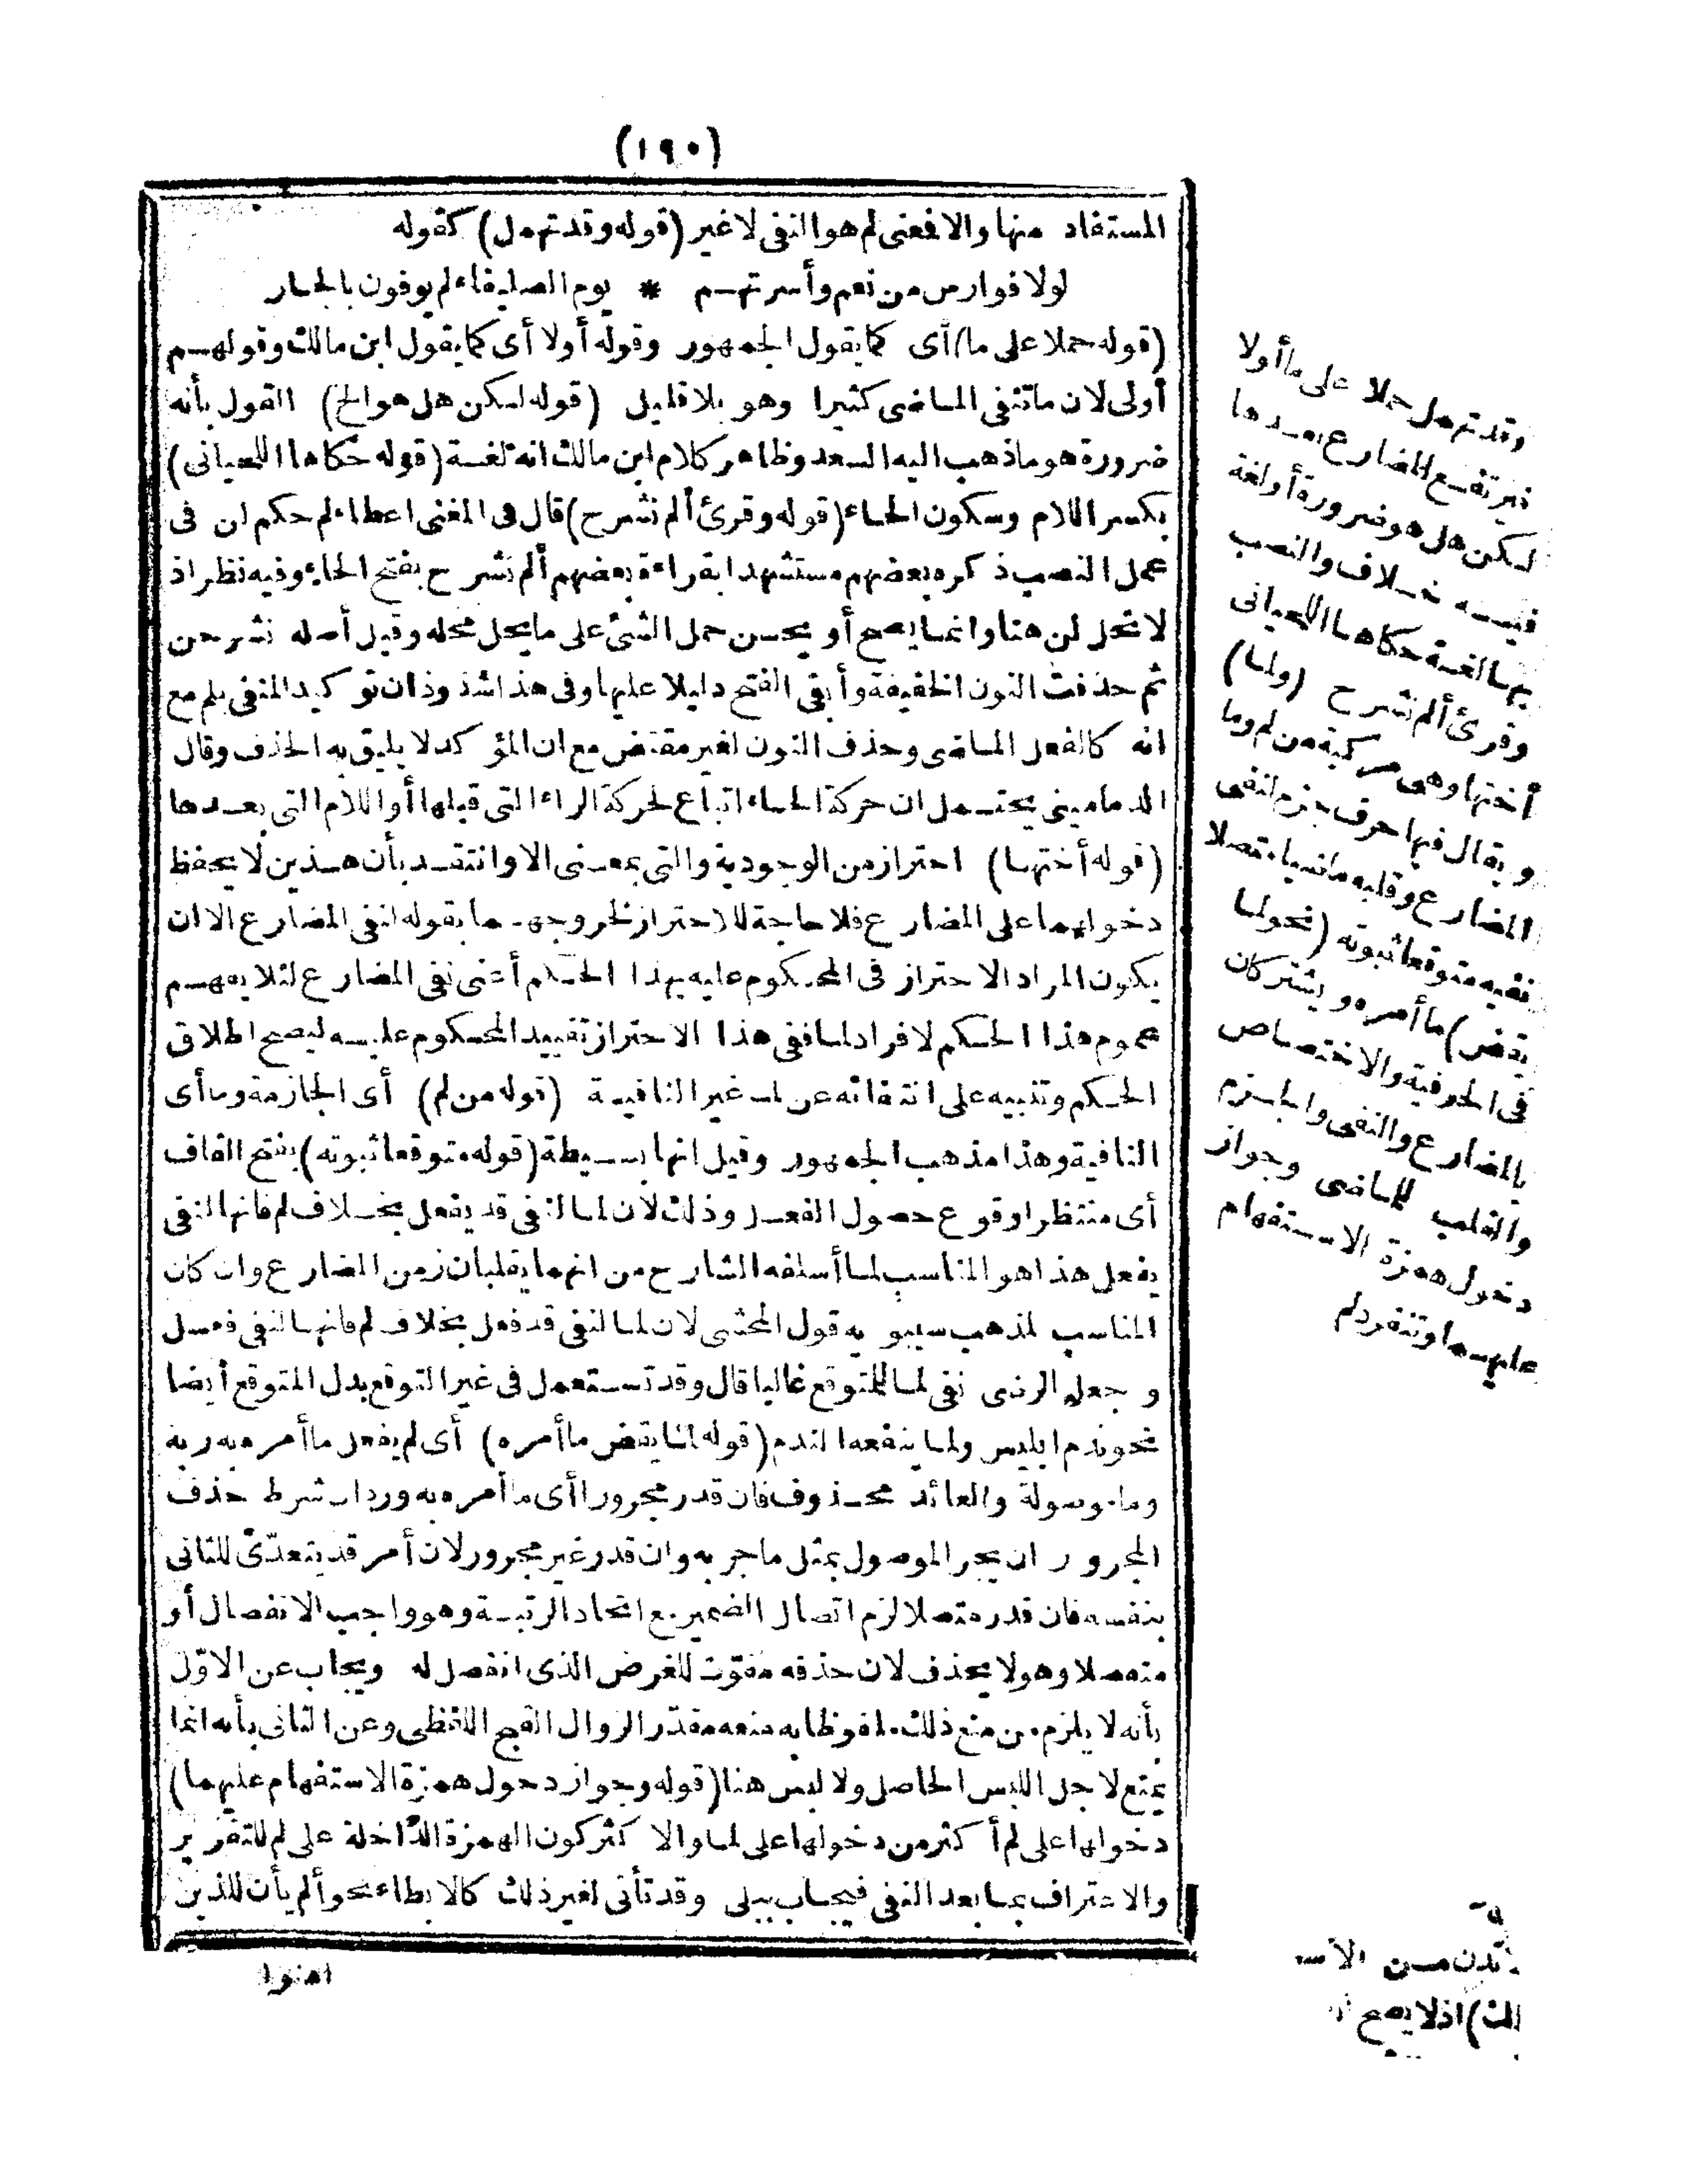 (١٩٠)
المستفاد منها والا فمعنى لم هو النفى لا غير (قوله وقد تهمل) كقوله
لولا فوارس من نعم وأسرتهم * يوم الصليفاء لم يوفون بالجار
(قوله حملا على ما) أى كما يقول الجمهور وقوله أولا أى كما يقول ابن مالك وقولهم
أولى لان ما تنفى الماضى كثيرا وهو بلا قليل (قوله لكن هل هو الخ) القول بأنه
ضرورة هو ما ذهب اليه السعد وظاهر كلام ابن مالك انه لغة (قوله حكاها اللحيانى)
بكسر اللام وسكون الحاء (قوله وقرئ ألم نشرح) قال فى المغنى اعطاء لم حكم ان فى
عمل النصب ذكره بعضهم مستشهدا بقراءة بعضهم ألم نشرح بفتح الحاء وفيه نظر اذ
لا تحل لن هنا وانما يصح أو يحسن حمل الشئ على ما يحل محله وقيل أصله نشرحن
ثم حذفت النون الخفيفة وأبقى الفتح دليلا عليها وفى هذا شذوذان توكيد المنفى بلم مع
انه كالفعل الماضى وحذف النون لغير مقتض مع ان المؤكد لا يليق به الحذف وقال
الدمامينى يحتمل ان حركة الحاء اتباع لحركة الراء التى قبلها أو اللام التى بعدها
(قوله أختها) احتراز من الوجودية والتى بمعنى الا وانتقد بأن هذين لا يحفظ
دخولهما على المضارع فلا حاجة للاحتراز لخروجهما بقوله لنفى المضارع الا ان
يكون المراد الاحتراز فى المحكوم عليه بهذا الحكم أعنى نفى المضارع لئلا يفهم
عموم هذا الحكم لافراد لما ففى هذا الاحتراز تقييد المحكوم عليه ليصح اطلاق
الحكم وتنبيه على انتفائه عن لما غير النافية (قوله من لم) أى الجازمة وما أى
النافية وهذا مذهب الجمهور وقيل انها بسيطة (قوله متوقعا ثبوته) بفتح القاف
أى منتظرا وقوع حصول الفعل وذلك لان لما لنفى قد يفعل بخلاف لم فانها لنفى
يفعل هذا هو المناسب لما أسلفه الشارح من انهما يقلبان زمن المضارع وان كان
المناسب لمذهب سيبويه قول المحشى لان لما لنفى قد فعل بخلاف لم فانها لنفى فعل
وجعل الرضى نفى لما للمتوقع غالبا قال وقد تستعمل فى غير التوقع بدل المتوقع أيضا
نحو ندم ابليس ولما ينفعه الندم (قوله لما يقض ما أمره) أى لم يفعل ما أمره به ربه
وما موصولة والعائد محذوف فان قدر مجرورا أى ما أمره به ورد ان شرط حذف
المجرور ان يجر الموصول بمثل ما جر به وان قدر غير مجرور لان أمر قد يتعدّى للثانى
بنفسه فان قدر متصلا لزم اتصال الضمير مع اتحاد الرتبة وهو واجب الانفصال أو
منفصلا وهو لا يحذف لان حذفه مفوّت للغرض الذى انفصل له ويجاب عن الاوّل
بأنه لا يلزم من منع ذلك ملفوظا به منعه مقدّرا لزوال القبح اللفظى وعن الثانى بأنه انما
يمتنع لاجل اللبس الحاصل ولا لبس هنا (قوله وجواز دخول همزة الاستفهام عليهما)
دخولها على لم أكثر من دخولها على لما والاكثر كون الهمزة الداخلة على لم للتقرير
والاعتراف بما بعد النفى فيجاب ببلى وقد تأتى لغير ذلك كالابطاء نحو ألم يأن للذين
امنوا
وقد تهمل حملا على ما أولا
فيرتفع المضارع بعدها
لكن هل هو ضرورة أو لغة
فيه خلاف والنصب
بها لغة حكاها اللحيانى
وقرئ ألم نشرح (ولما)
أختها وهى مركبة من لم وما
ويقال فيها حرف جزم لنفى
المضارع وقلبه ماضيا متصلا
نفيه متوقعا ثبوته (نحو لما
يقض) ما أمره ويشتركان
فى الحرفية والاختصاص
بالمضارع والنفى والجزم
والقلب للماضى وجواز
دخول همزة الاستفهام
عليهما وتنفرد لم
اذ لا يصح